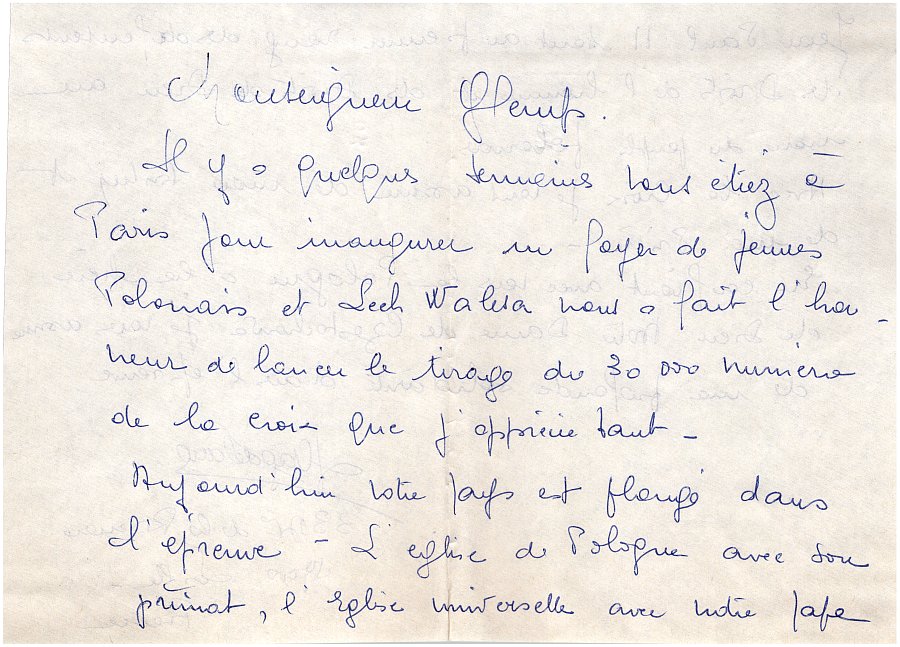 Monseigneur Glemp.
Il y a quelques semaines vous étiez à
Paris pour inaugurer un foyer de jeunes
Polonais et Lech Walesa nous a fait l'hon-
neur de lancer le tirage du 30 000 numéro
de la croix que j'apprécie tant -
Aujourd'hui votre pays est plongé dans
l'épreuve - L'eglise de Pologne avec son
primat, l'Eglise universelle avec notre pape